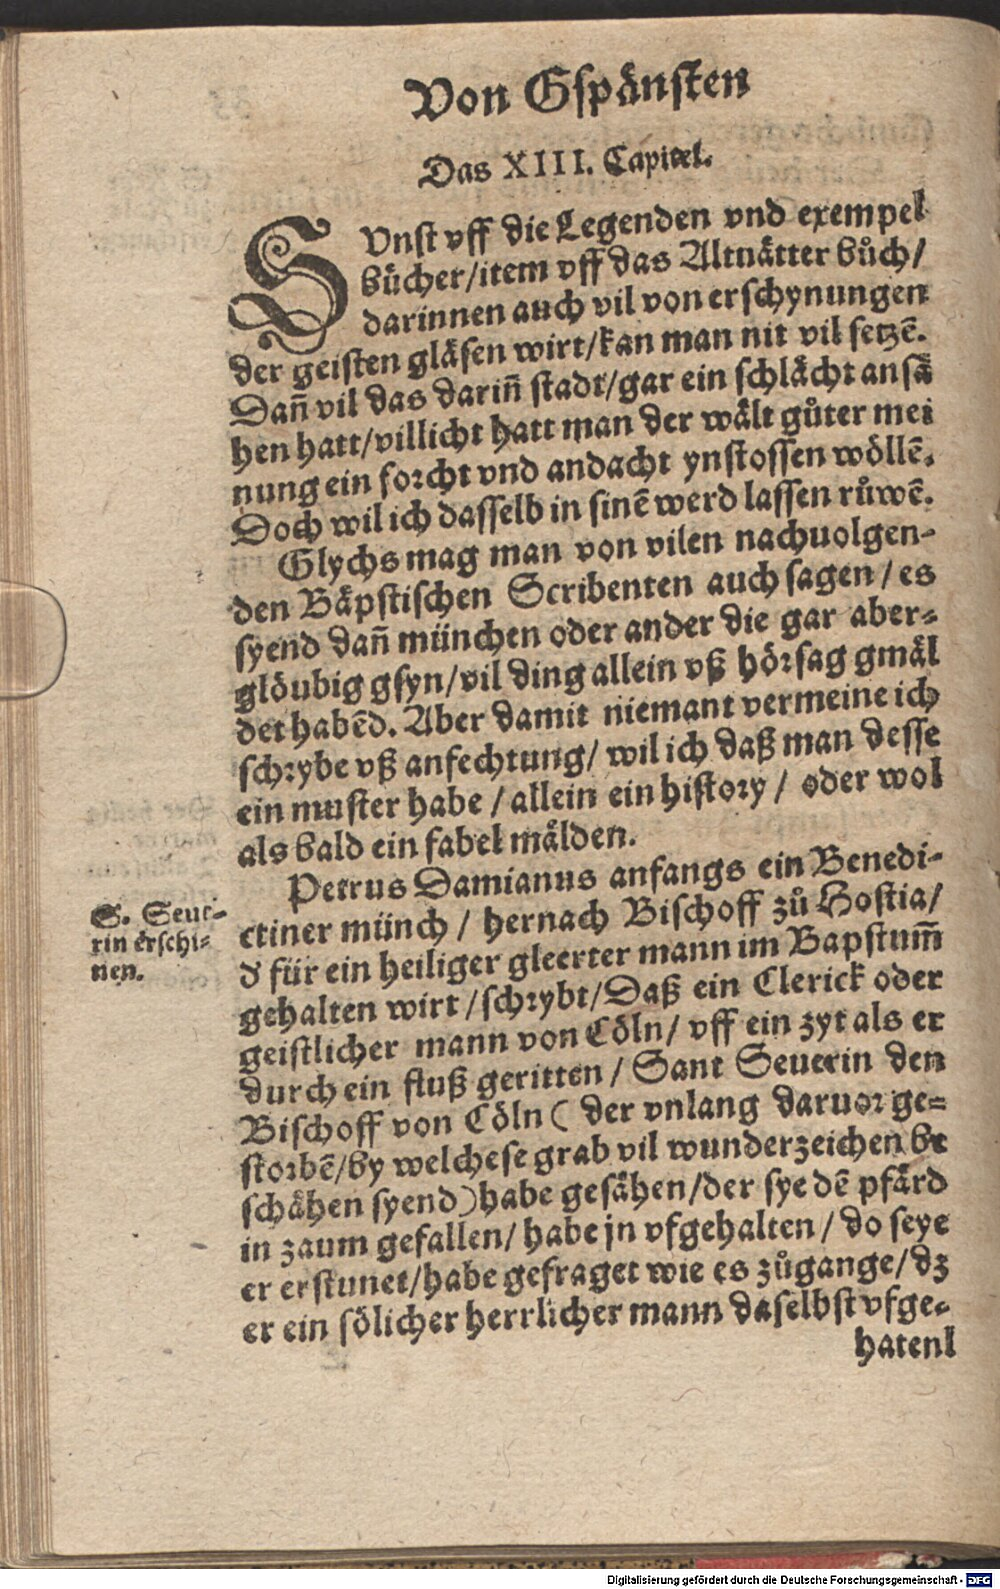 Von Gspänsten
Das XIII. Capitel.
SVnst vff die Legenden vnd exempel
bücher/item vff das Altuätter bůch/
darinnen auch vil von erschynungen
der geisten gläsen wirt/kan man nit vil setzē.
Dañ vil das dariñ stadt/gar ein schlächt ansä
hen hatt/villicht hatt man der wält gůter mei
nung ein forcht vnd andacht ynstossen wöllē.
Doch wil ich dasselb in sinē werd lassen růwē.
Glychs mag man von vilen nachuolgen-
den Bäpstischen Scribenten auch sagen/ es
syend dañ münchen oder ander die gar aber-
glöubig gsyn/vil ding allein vß hörsag gmäl
det habēd. Aber damit niemant vermeine ich
schrybe vß anfechtung/ wil ich daß man desse
ein muster habe / allein ein history / oder wol
als bald ein fabel mälden.
Petrus Damianus anfangs ein Benedi-
ctiner münch / hernach Bischoff zů Hostia/
d für ein heiliger gleerter mann im Bapstum̃
gehalten wirt/schrybt/Daß ein Clerick oder
geistlicher mann von Cöln/ vff ein zyt als er
durch ein fluß geritten/ Sant Seuerin den
Bischoff von Cöln ( der vnlang daruor ge-
storbē/by welchese grab vil wunderzeichen be
schähen syend) habe gesähen/der sye dē pfärd
in zaum gefallen/ habe jn vfgehalten/ do seye
er erstunet/habe gefraget wie es zůgange/dz
er ein sölicher herrlicher mann daselbst vfge-
hatenl
S. Seue-
rin erschi-
nen.
Digitalisierung gefördert durch die Deutsche Forschungsgemeinschaft - DFG